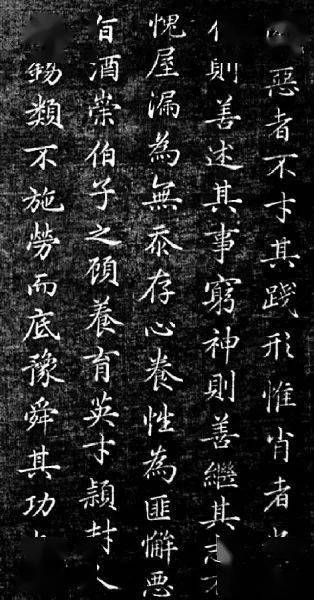 惡者不才其踐形惟肖者也
則善述其事窮神則善繼其志不
愧屋漏為無忝存心養性為匪懈惡
旨酒崇伯子之顧養育英才穎封人
類不施勞而底豫舜其功